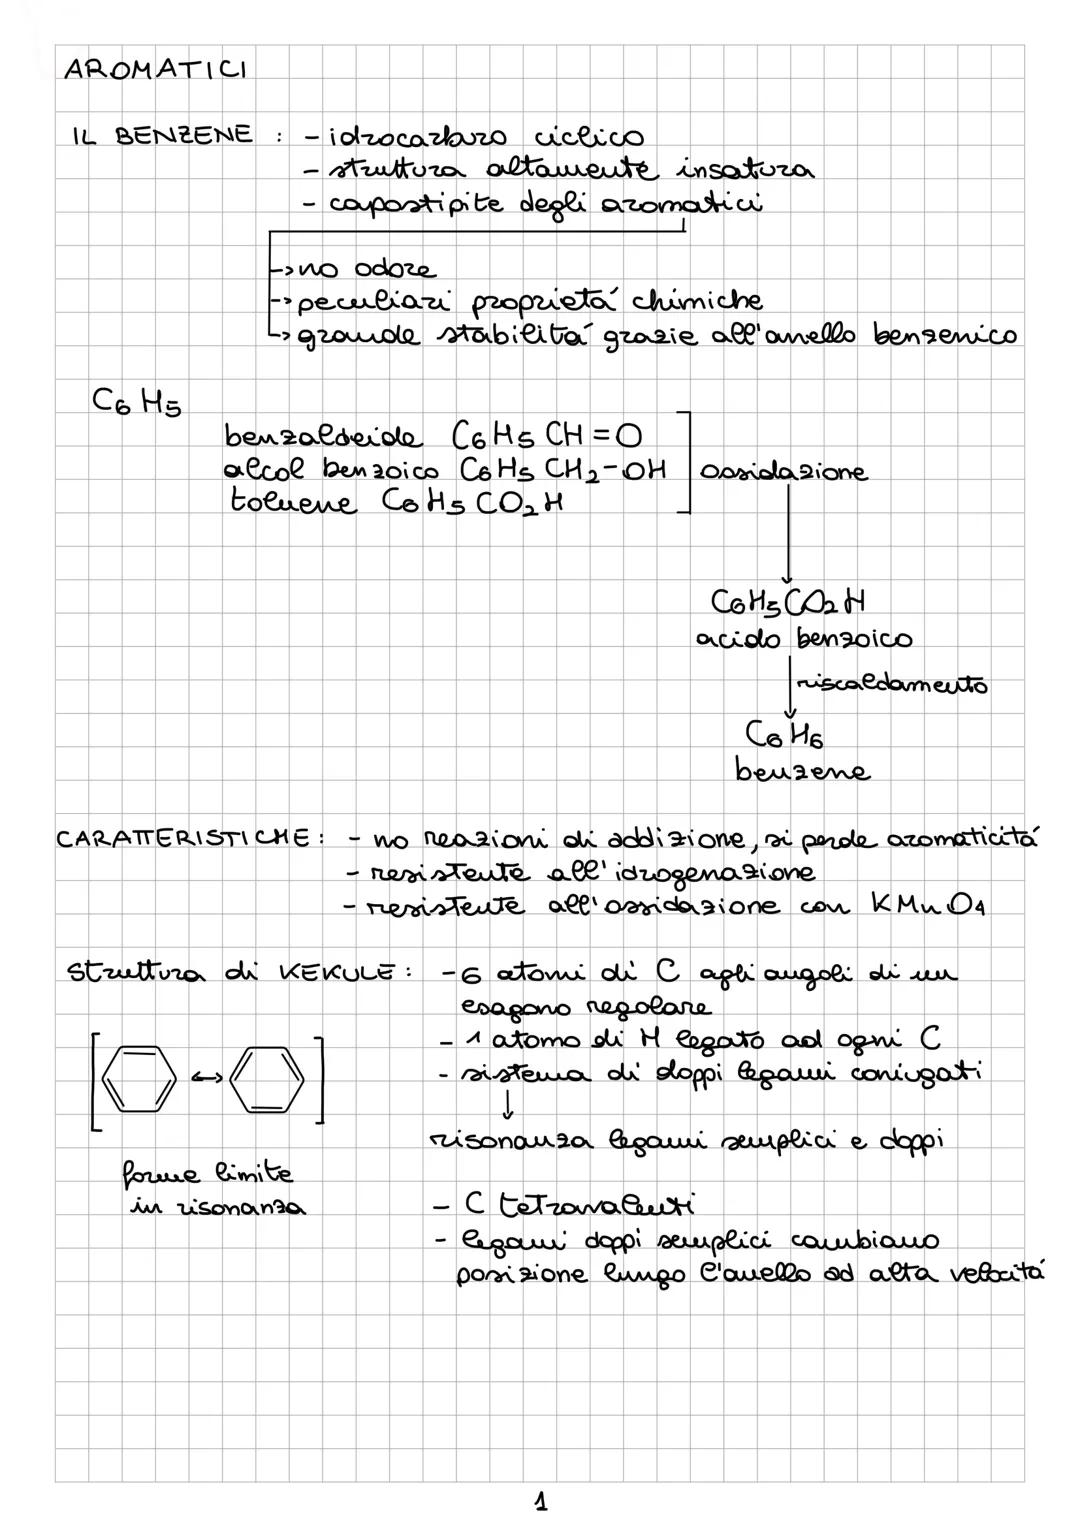 AROMATICI
IL BENZENE : - idrocarburo ciclico
- struttura altamente insatura
- capostipite degli aromatici
-> no odore
-> peculiari proprietá chimiche
-> grande stabilitá grazie all'anello benzenico
C6 H5
benzaldeide C6H5 CH=O
alcol benzoico C6H5 CH2-OH
toluene C6H5 CO2H
ossidazione
C6H5CO2H
acido benzoico
riscaldamento
C6H6
benzene
CARATTERISTICHE: - no reazioni di addizione, si perde aromaticitá
- resistente all'idrogenazione
- resistente all'ossidazione con KMnO4
Struttura di KEKULE: - 6 atomi di C agli angoli di un
esagono regolare
- 1 atomo di H legato ad ogni C
- sistema di doppi legami coniugati
↓
risonanza legami semplici e doppi
[ ↔ ]
forme limite
in risonanza
- C tetravalenti
- legami doppi semplici cambiano
posizione lungo l'anello ad alta velocitá
1